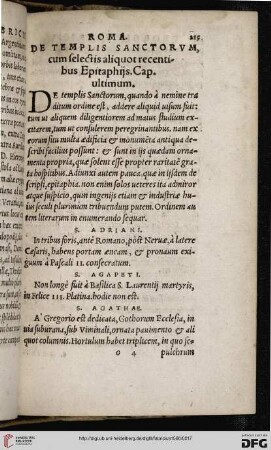 ROMA. 215
DE TEMPLIS SANCTORVM,
cum selectis aliquot recenti-
bus Epitaphijs. Cap.
vltimum.
DE templis Sanctorum, quando à nemine tra
ditum ordine est, addere aliquid visum fuit:
tum ut aliquem diligentiorem ad maius studium ex-
citerem, tum ut consulerem peregrinantibus. nam ex
eorum situ multa ædificia & monumẽta antiqua de-
scribi facilius possunt: & sunt in ijs quædam orna-
menta propria, quæ solent esse propter raritatẽ gra-
ta hospitibus. Adiunxi autem pauca, quæ in ijsdem de-
scripsi, epitaphia. non enim solos veteres ita admiror
atque suspicio, quin ingenijs etiam & industriæ hu-
ius seculi plurimùm tribuendum putem. Ordinem au
tem literarum in enumerando sequar.
S. ADRIANI.
In tribus foris, antè Romano, pòst Neruæ, à latere
Cæsaris, habens portam æneam, & pronaum exi-
guum à Pascali II. consecratum.
S. AGAPETI.
Non longè fuit à Basilica S. Laurentij martyris,
in Felice III. Platina. hodie non est.
S. AGATHAE.
A' Gregorio est dedicata, Gothorum Ecclesia, in
uia suburana, sub Viminali, ornata pauimento & ali
quot columnis. Hortulum habet triplicem, in quo se-
o 4 pulchrum
http://digi.ub.uni-heidelberg.de/diglit/fabricius1550/0217
DFG